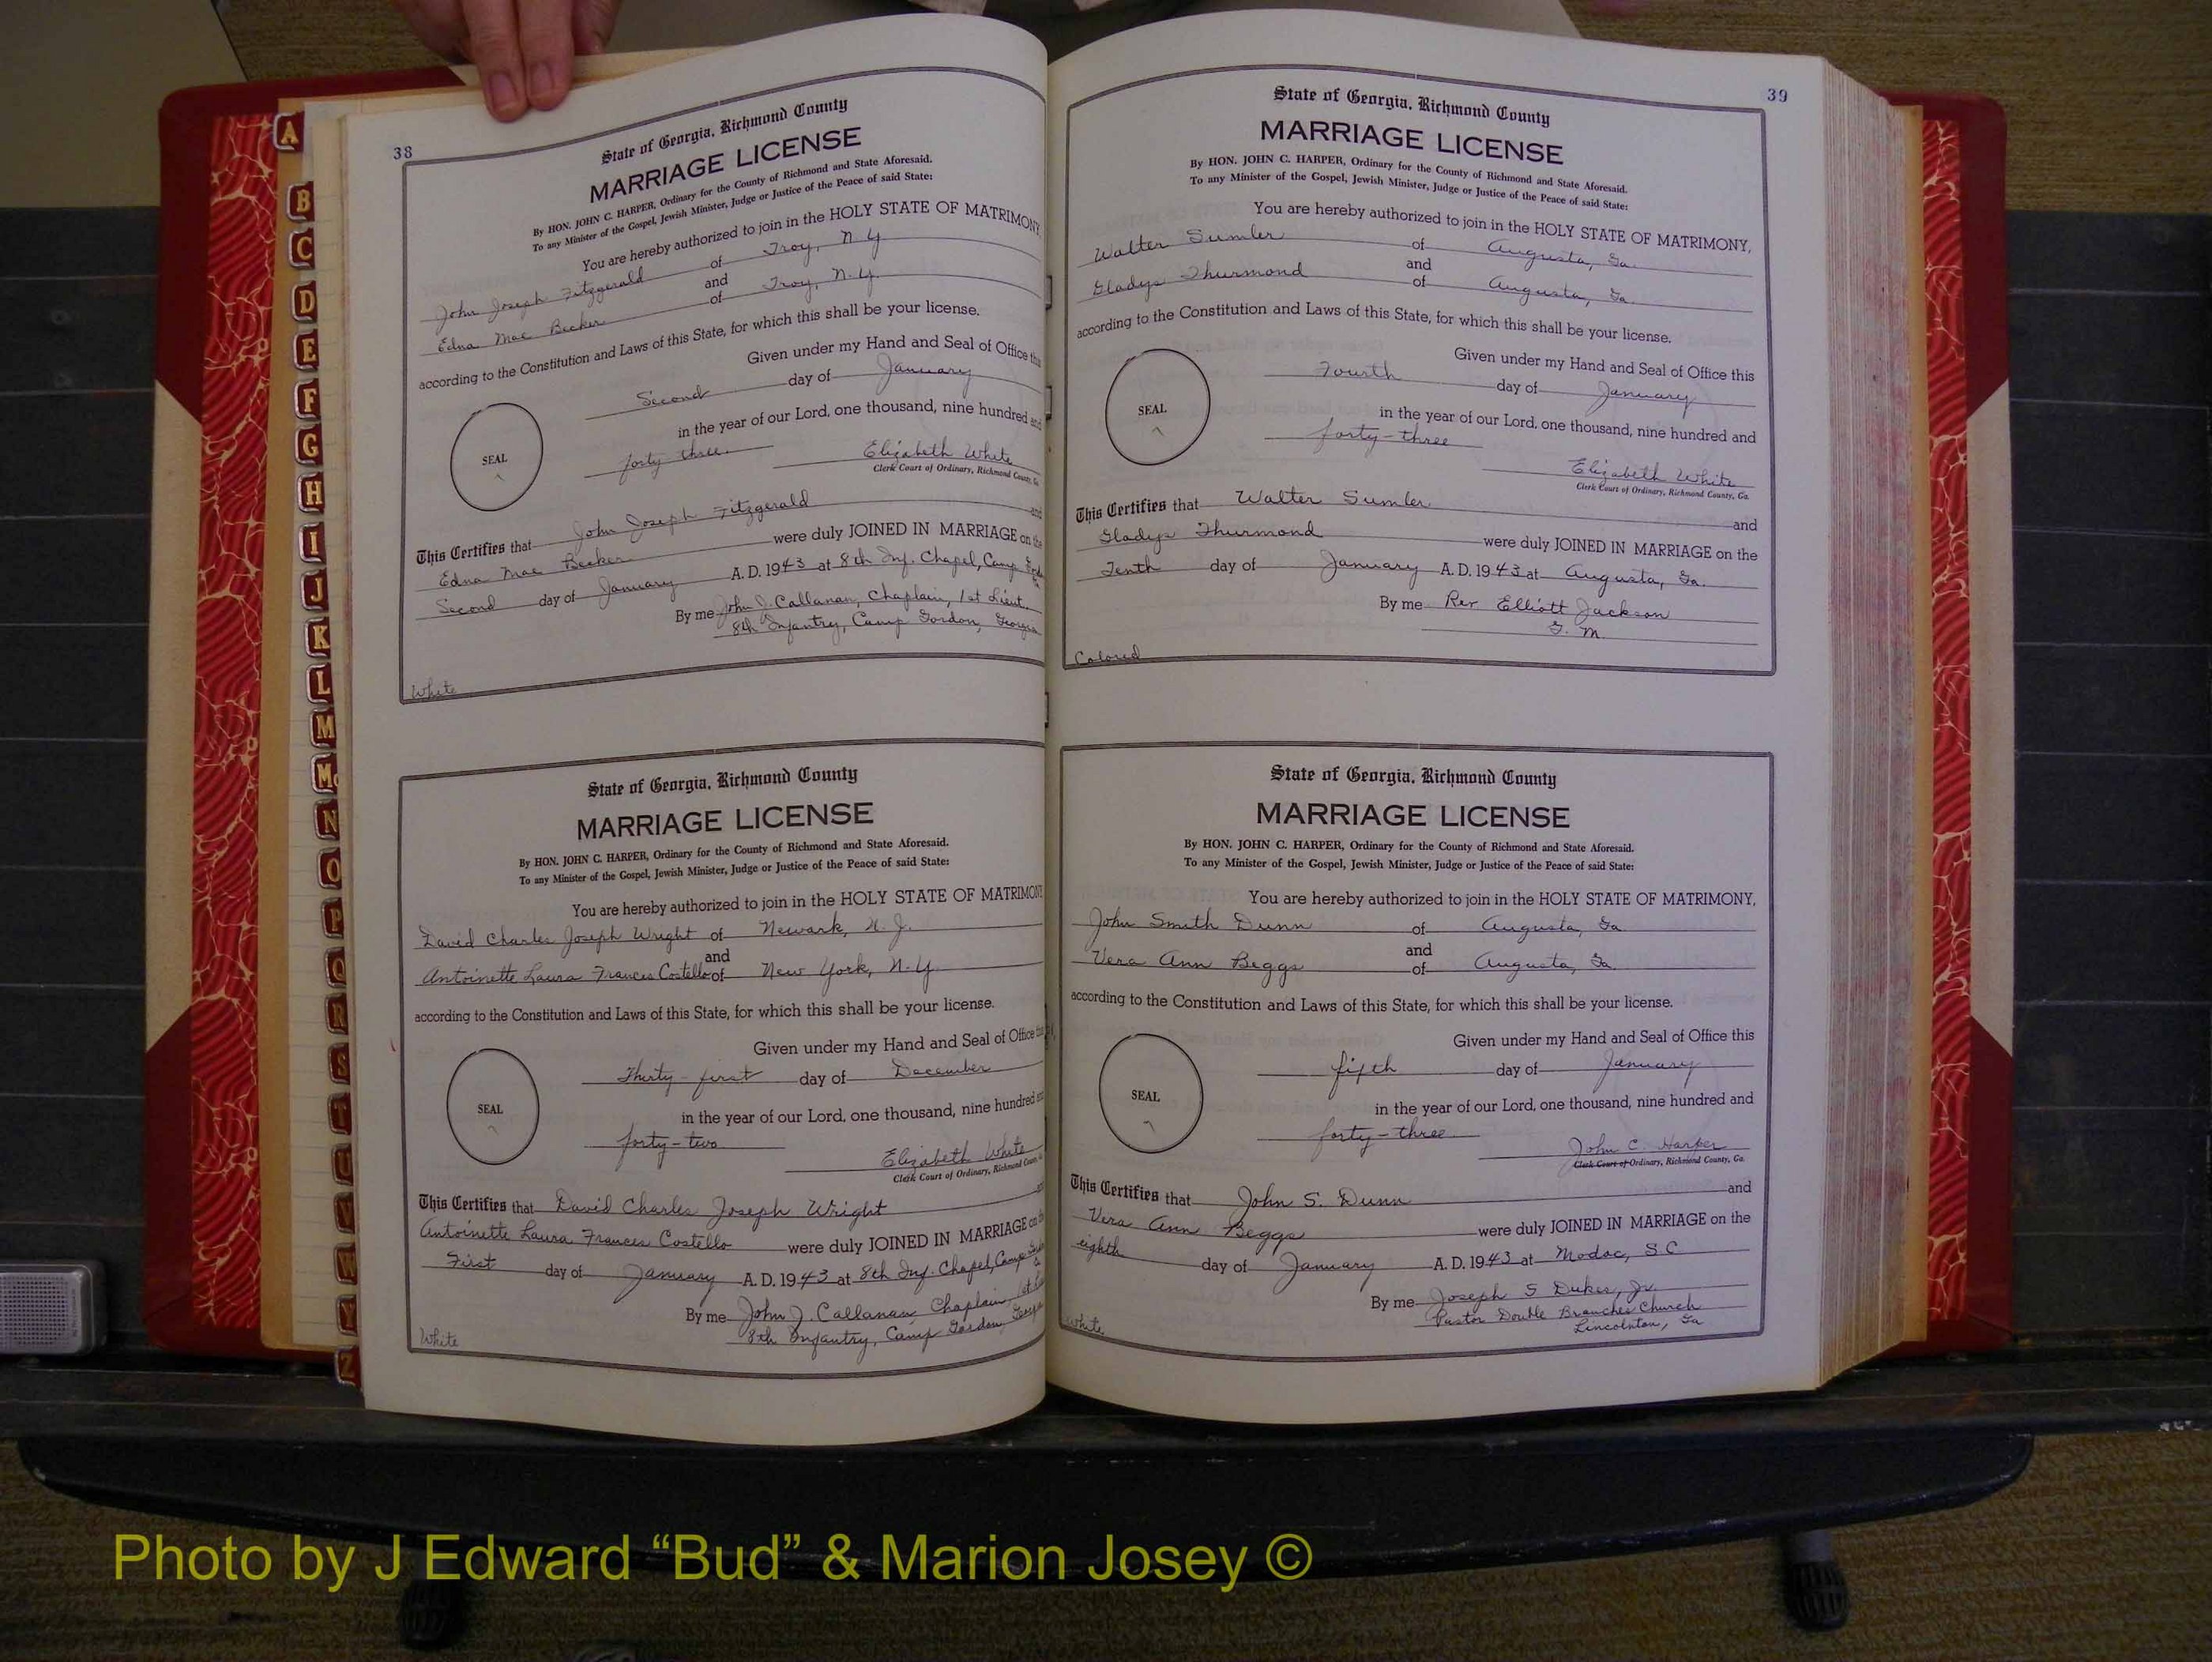 A
B
C
D
E
F
G
H
I
J
K
L
M
Mc
N
O
P
Q
R
S
T
U
V
W
Y
Z
38
State of Georgia, Richmond County
MARRIAGE LICENSE
By HON. JOHN C. HARPER, Ordinary for the County of Richmond and State Aforesaid.
To any Minister of the Gospel, Jewish Minister, Judge or Justice of the Peace of said State:
You are hereby authorized to join in the HOLY STATE OF MATRIMONY,
John Joseph Fitzgerald of Troy, N.Y.
and
Edna Mae Becker of Troy, N.Y.
according to the Constitution and Laws of this State, for which this shall be your license.
Given under my Hand and Seal of Office this
Second day of January
in the year of our Lord, one thousand, nine hundred and
SEAL
forty three. Elizabeth White
Clerk Court of Ordinary, Richmond County, Ga.
This Certifies that John Joseph Fitzgerald and
Edna Mae Becker were duly JOINED IN MARRIAGE on the
Second day of January A. D. 1943 at 8th Inf. Chapel, Camp
By me John J. Callanan, Chaplain, 1st Lieut.
8th Infantry, Camp Gordon, Georgia
White
State of Georgia, Richmond County
MARRIAGE LICENSE
By HON. JOHN C. HARPER, Ordinary for the County of Richmond and State Aforesaid.
To any Minister of the Gospel, Jewish Minister, Judge or Justice of the Peace of said State:
You are hereby authorized to join in the HOLY STATE OF MATRIMONY
David Charles Joseph Wright of Newark, N.J.
and
Antoinette Laura Frances Costello of New York, N.Y.
according to the Constitution and Laws of this State, for which this shall be your license.
Given under my Hand and Seal of Office this
Thirty-first day of December
SEAL
in the year of our Lord, one thousand, nine hundred and
forty-two Elizabeth White
Clerk Court of Ordinary, Richmond County,
This Certifies that David Charles Joseph Wright and
Antoinette Laura Frances Costello were duly JOINED IN MARRIAGE on the
First day of January A. D. 1943 at 8th Inf. Chapel, Camp
By me John J. Callanan, Chaplain, 1st
8th Infantry, Camp Gordon, Georgia
White
39
State of Georgia, Richmond County
MARRIAGE LICENSE
By HON. JOHN C. HARPER, Ordinary for the County of Richmond and State Aforesaid.
To any Minister of the Gospel, Jewish Minister, Judge or Justice of the Peace of said State:
You are hereby authorized to join in the HOLY STATE OF MATRIMONY,
Walter Sumler of Augusta, Ga.
and
Gladys Thurmond of Augusta, Ga.
according to the Constitution and Laws of this State, for which this shall be your license.
Given under my Hand and Seal of Office this
Fourth day of January
SEAL
in the year of our Lord, one thousand, nine hundred and
forty-three
Elizabeth White
Clerk Court of Ordinary, Richmond County, Ga.
This Certifies that Walter Sumler and
Gladys Thurmond were duly JOINED IN MARRIAGE on the
Tenth day of January A. D. 1943 at Augusta, Ga.
By me Rev Elliott Jackson
G. M.
Colored
State of Georgia, Richmond County
MARRIAGE LICENSE
By HON. JOHN C. HARPER, Ordinary for the County of Richmond and State Aforesaid.
To any Minister of the Gospel, Jewish Minister, Judge or Justice of the Peace of said State:
You are hereby authorized to join in the HOLY STATE OF MATRIMONY,
John Smith Dunn of Augusta, Ga
and
Vera Ann Beggs of Augusta, Ga.
according to the Constitution and Laws of this State, for which this shall be your license.
Given under my Hand and Seal of Office this
fifth day of January
SEAL
in the year of our Lord, one thousand, nine hundred and
forty-three
John C. Harper
Clerk Court of Ordinary, Richmond County, Ga.
This Certifies that John S. Dunn and
Vera Ann Beggs were duly JOINED IN MARRIAGE on the
eighth day of January A. D. 1943 at Modoc, S.C
By me Joseph S Dukes, Jr.
Pastor Double Branches Church
Lincolnton, Ga
White
Photo by J Edward “Bud” & Marion Josey ©